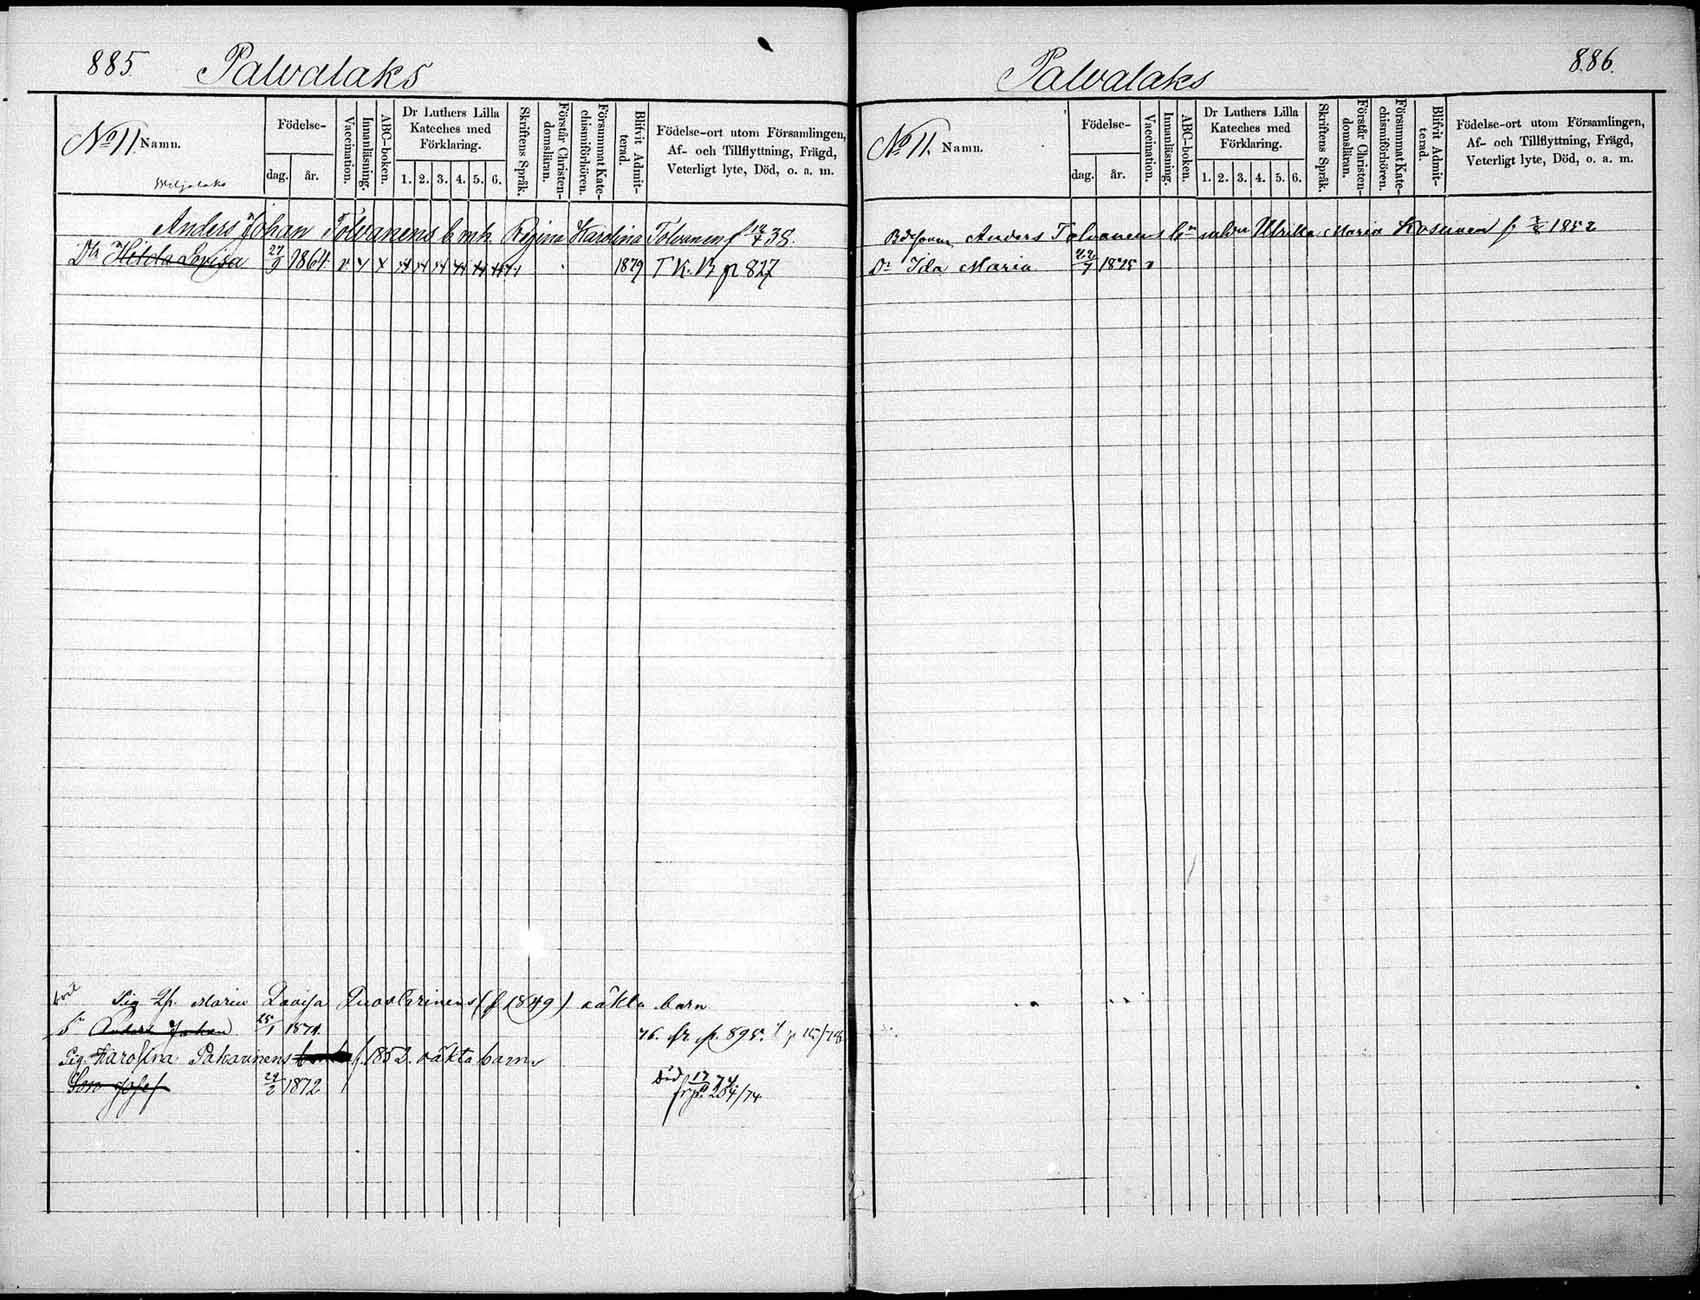 885. Palvalaks
No 11. Namn.
Födelse-
dag. år.
Vaccination.
Innanläsning.
ABC-boken.
Dr Luthers Lilla
Kateches med
Förklaring.
1. 2. 3. 4. 5. 6.
Skriftens Språk.
Förstår Christen-
domsläran.
Försummat Kate-
chismiförhören.
Blifvit Admit-
terad.
Födelse-ort utom Församlingen,
Af- och Tillflyttning, Frägd,
Veterligt lyte, Död, o. a. m.
Anders Johan Tolvanens b m h. Regina Karolina Tolvanen f 38.
Dtr Hilda Lovisa 27/9 1864 1879 T K. B p 827
Pig Maria Lovisa (f 1849) oäkta barn
Sn Anders Johan 1871. 76. fr. p. 895.
Pig. Karolina Pakarinens f. 1852. oäkta barn
Son Josef 29/2 1872 Död 17
frp. 284/74
Palvalaks 886.
No 11. Namn.
Födelse-
dag. år.
Vaccination.
Innanläsning.
ABC-boken.
Dr Luthers Lilla
Kateches med
Förklaring.
1. 2. 3. 4. 5. 6.
Skriftens Språk.
Förstår Christen-
domsläran.
Försummat Kate-
chismiförhören.
Blifvit Admit-
terad.
Födelse-ort utom Församlingen,
Af- och Tillflyttning, Frägd,
Veterligt lyte, Död, o. a. m.
Anders Tolvanens bn Ulrika Maria Kosunen f 1852
Dr Ida Maria 22/7 1875